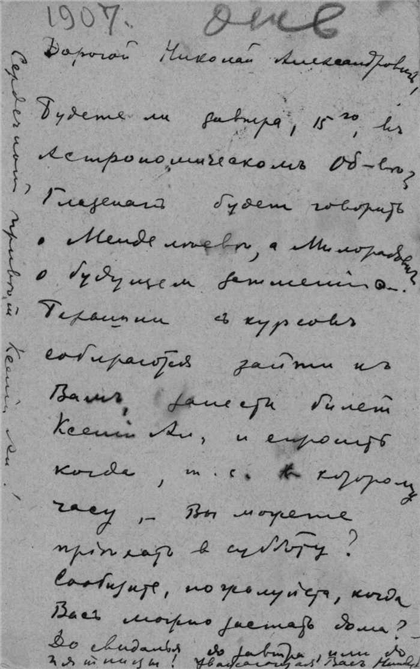 1907. янв
Дорогой Николай Александрович,
Будете ли завтра, 15го, въ
Астрономическомъ Об-вѣ?
Глазенапъ будетъ говорить
о Менделѣевѣ, а Милорадовичъ
о будущемъ затменіи.
съ курсовъ
собираются зайти къ
Вамъ, занести билет
Ксеніи Ал. и спросить
когда, т. е. къ которому
часу, – Вы можете
пріѣхать в субботу?
Сообщите, пожалуйста, когда
Васъ можно застать дома? –
До свиданья до завтра, или до
пятницы! Васъ
Сердечный привѣтъ Ксеніи Ал.!